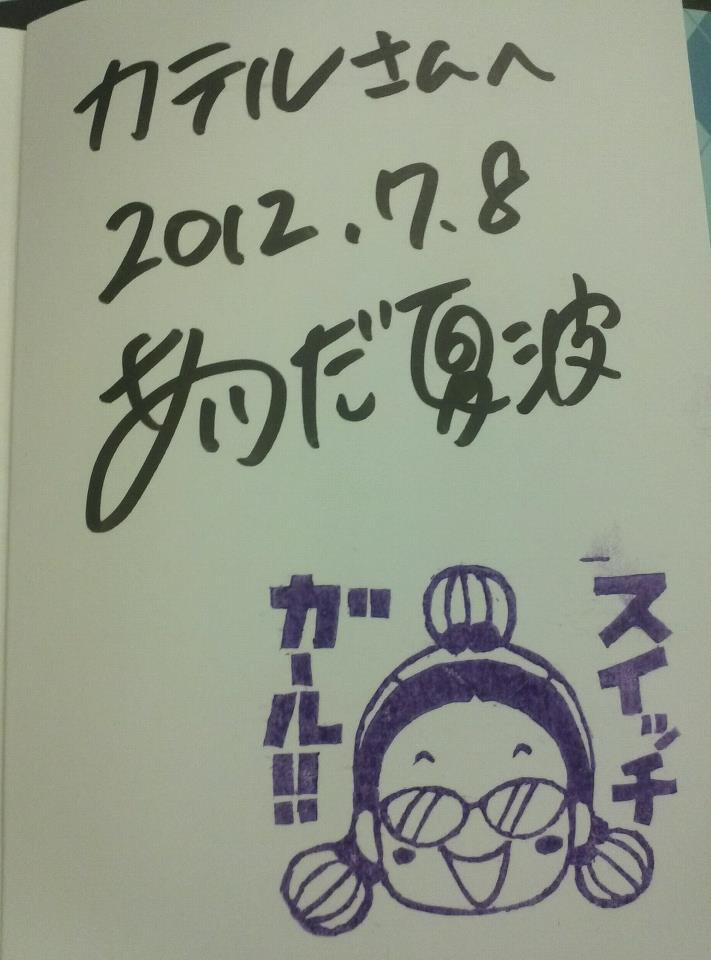 カテルさんへ
2012.7.8
あいだ夏波
スイッチ
ガール!!